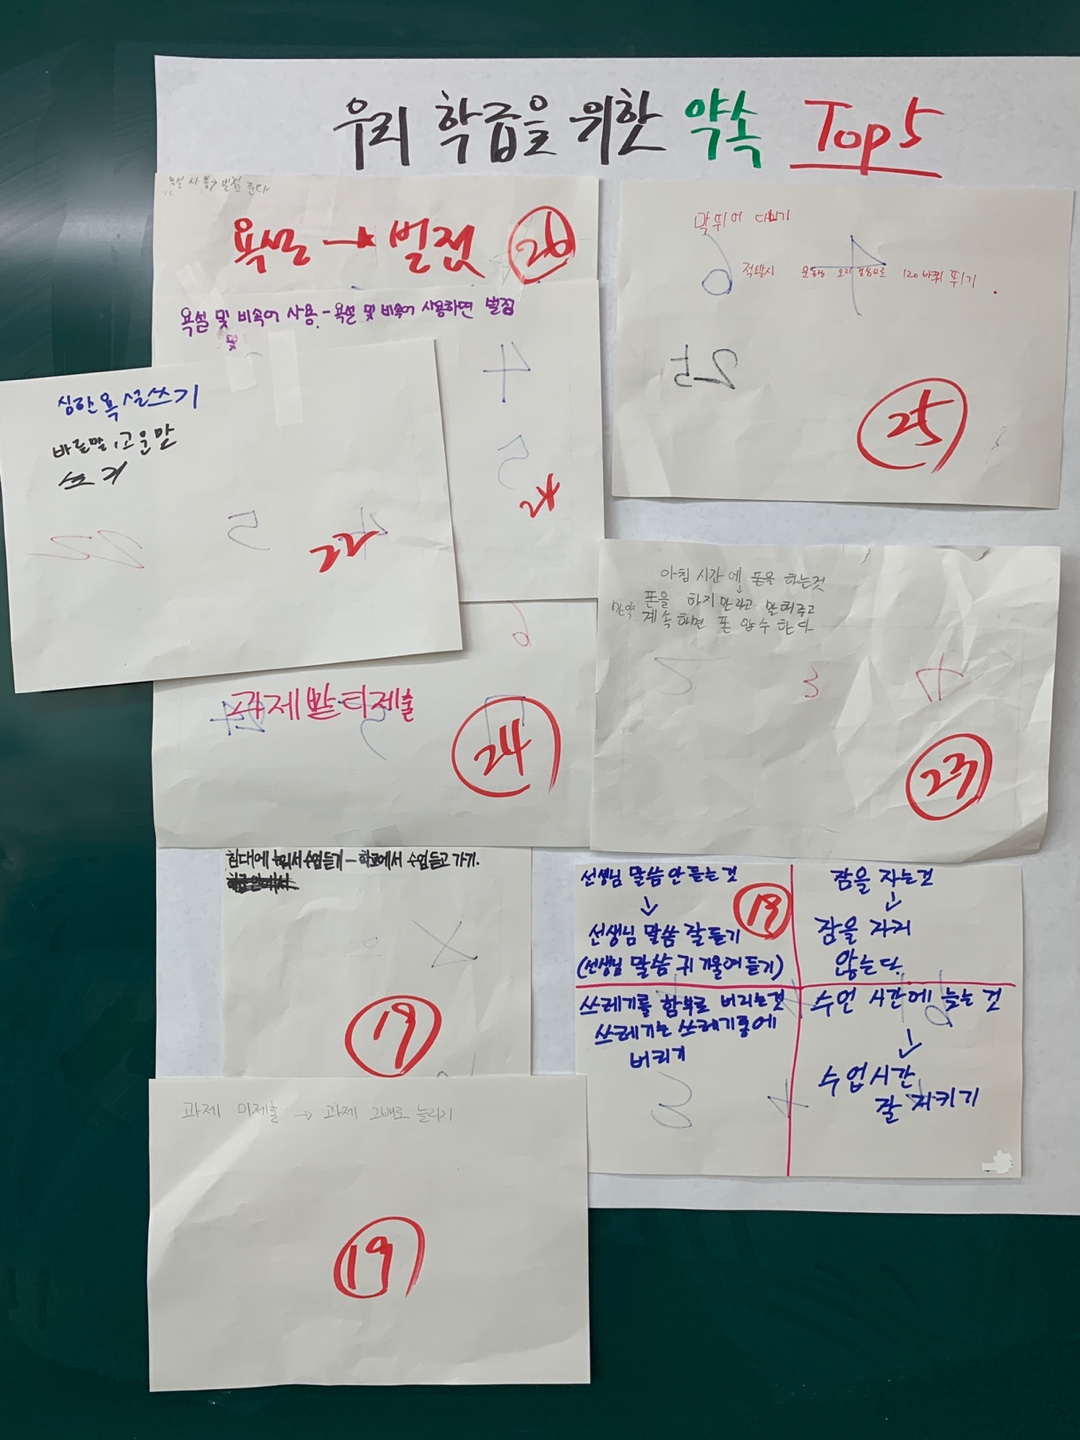 우리 학급을 위한 약속 Top5
욕설 → 벌점 26
욕설 및 비속어 사용 - 욕설 및 비속어 사용하면 벌점
및
4
5
24
심한 욕설쓰기
바른말, 고운말
쓰기
22
5
22
맞뛰어 다니기
적발시 운동장 오리걸음으로 120바퀴 뛰기
6
25
25
아침 시간에 폰을 하는것
만약 폰을 하지 말라고 말해주고
계속하면 폰 압수 한다.
3
4
23
6
과제 발티제출
24
침대에 누워서 수업듣기 - 학교에서 수업듣고 가기.
19
선생님 말씀 안 듣는 것
↓
선생님 말씀 잘 듣기
(선생님 말씀 귀 기울여 듣기)
19
잠을 자는것
↓
잠을 자지
않는다.
쓰레기를 함부로 버리는것
쓰레기는 쓰레기통에
버리기
3
4
수업 시간에 늦는 것
↓
수업시간
잘 지키기
과제 미제출 → 과제 2배로 늘리기
19